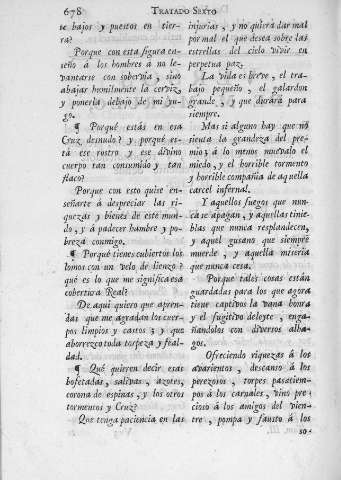 678 TRATADO SEXTO
te bajos y puestos en tier-
ra?
Porque con esta figura en-
seño á los hombres á no le-
vantarse con sobervia, sino
abajar humilmente la cerviz,
y ponerla debajo de mi yu-
go.
¶ Porqué estás en esa
Cruz desnudo? y porqué es-
tá ese rostro y ese divino
cuerpo tan consumido y tan
flaco?
Porque con esto quise en-
señarte á despreciar las ri-
quezas y bienes de este mun-
do, y á padecer hambre y po-
breza conmigo.
¶ Porqué tienes cubiertos los
lomos con un velo de lienzo?
qué es lo que me significa esa
cobertura Real?
De aqui quiero que apren-
das que me agradan los cuer-
pos limpios y castos; y que
aborrezco toda torpeza y feal-
dad.
¶ Qué quieren decir esas
bofetadas, salivas, azotes,
corona de espinas, y los otros
tormentos y Cruz?
Que tenga paciencia en las
injurias, y no quiera dar mal
por mal el que desea sobre las
estrellas del cielo vivir en
perpetua paz.
La vida es breve, el tra-
bajo pequeño, el galardon
grande, y que durará para
siempre.
Mas si alguno hay que no
sienta la grandeza del pre-
mio; á lo menos muevalo el
miedo, y el horrible tormento
y horrible compañia de aquella
carcel infernal.
Y aquellos fuegos que nun-
ca se apagan, y aquellas tinie-
blas que nunca resplandecen,
y aquel gusano que siempre
muerde, y aquella miseria
que nunca cesa.
Porque tales cosas están
guardadas para los que agora
tiene captivos la vana honra
y el fugitivo deleyte, enga-
ñandolos con diversos alha-
gos.
Ofreciendo riquezas á los
avarientos, descanso á los
perezosos, torpes pasatiem-
pos á los carnales, vino pre-
cioso á los amigos del vien-
tre, pompa y fausto á los
so-